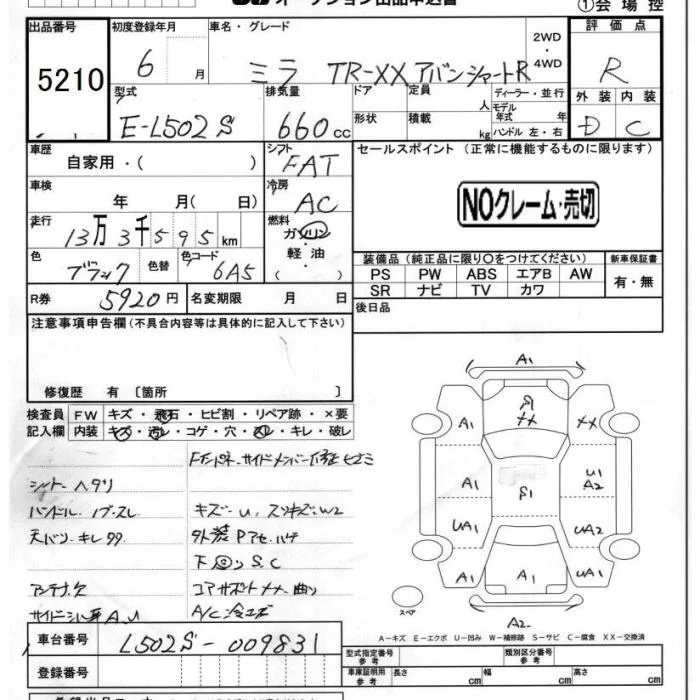 オークション出品申込書
①会場控
出品番号 初度登録年月 車名・グレード 評価点
5210 6 月 ミラ TR-XX アバンツァートR 2WD・4WD R
型式 排気量 ドア 定員 ディーラー・並行 外装 内装
E-L502S 660cc 形状 積載 人 kg モデル年式 年 ハンドル 左・右 D C
車歴 シフト セールスポイント(正常に機能するものに限ります)
自家用・( ) FAT
車検 冷房
年 月( 日) AC NOクレーム・売切
走行 燃料
13万3千595km ガソリン
色 色替 色コード 軽油 装備品(純正品に限り○をつけてください) 新車保証書
ブラック 6A5 ( ) PS PW ABS エアB AW 有・無
SR ナビ TV カワ
R券 5920円 名変期限 月 日 後日品
注意事項申告欄(不具合内容等は具体的に記入して下さい)
修復歴 有〔箇所 〕
検査員 FW キズ・飛石・ヒビ割・リペア跡・×要
記入欄 内装 キズ・汚レ・コゲ・穴・スレ・キレ・破レ
シートヘタリ
ハンドル
キズ・U
天バリ・キレ
外装Pアセ・ハゲ
下回リ S.C
アンテナ欠
コアサポート XX・曲リ
A.U
A1
R
XX
A1
XX
A1
S1
U1
A2
UA1
UA2
A1
A1
UA1
A2
スペア
A-キズ E-エクボ U-凹み W-補修跡 S-サビ C-腐食 XX-交換済
車台番号 L502S-009831
登録番号
型式指定番号 参考 類別区分番号 参考
車庫証明用 参考 長さ cm 幅 cm 高さ cm